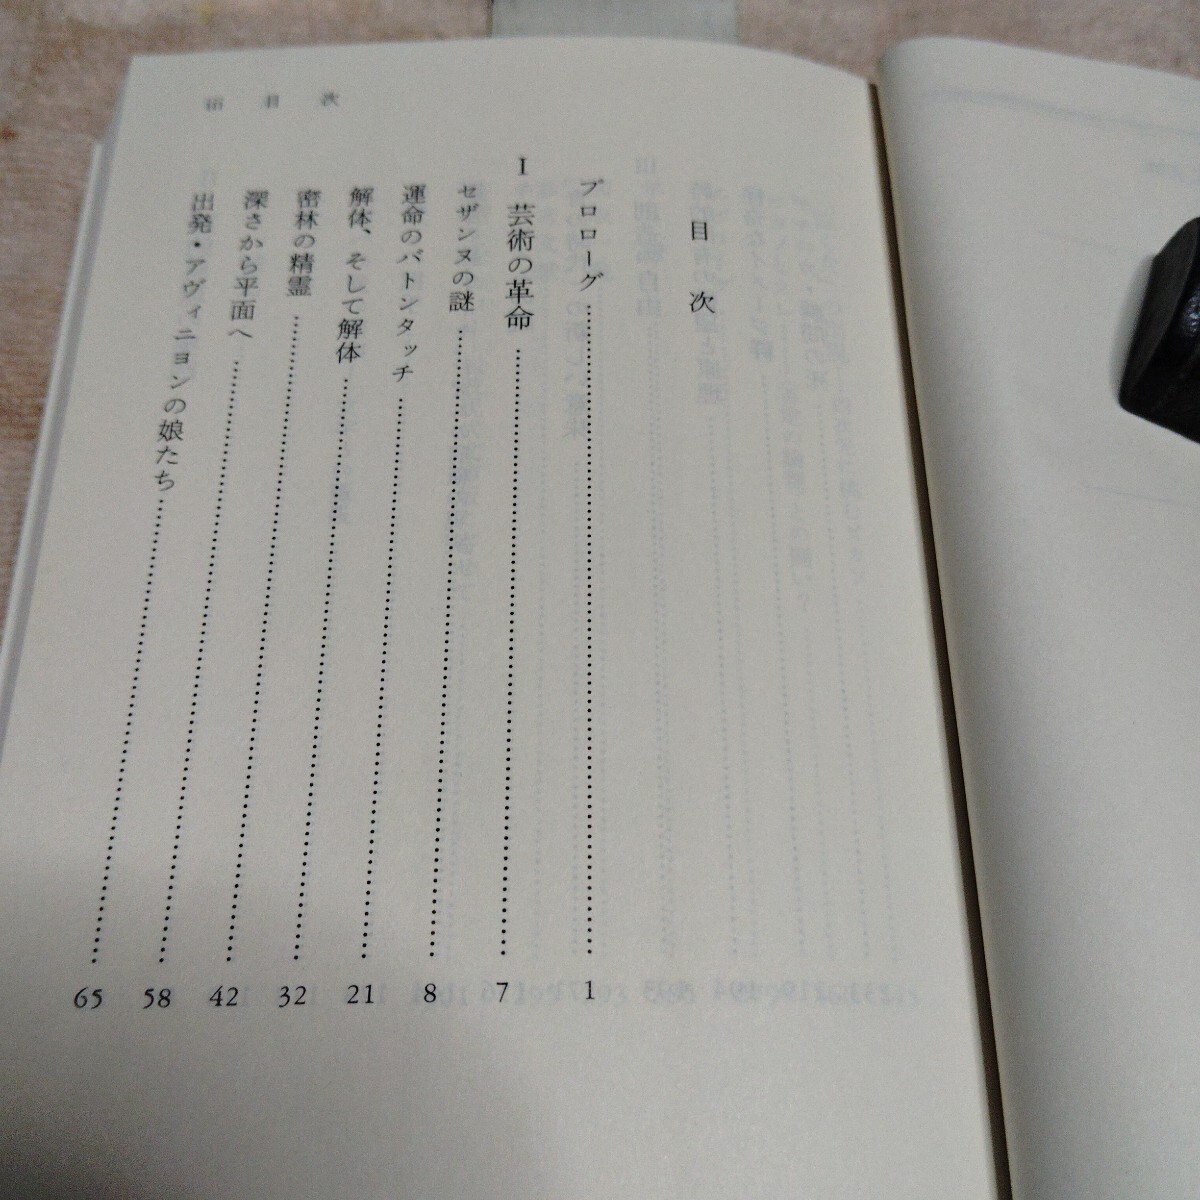 目次
プロローグ……1
I 芸術の革命……7
セザンヌの謎……8
運命のバトンタッチ……21
解体、そして解体……32
密林の精霊……42
深さから平面へ……58
出発・アヴィニョンの娘たち……65